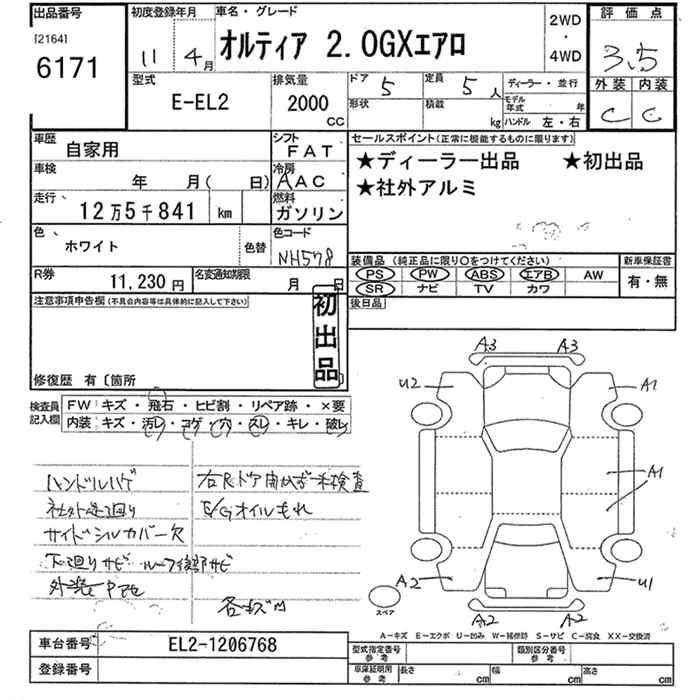 出品番号 初度登録年月 車名・グレード 2WD・4WD 評価点
[2164] 6171 11年 4月 オルティア 2.0GXエアロ 3.5
型式 E-EL2 排気量 2000 CC ドア 5 定員 5人 ディーラー・並行 外装 内装
形状 積載 kg モデル年式 年 ハンドル 左・右 C C
車歴 自家用 シフト FAT セールスポイント(正常に機能するものに限ります)
車検 年 月( 日) 冷房 AAC ★ディーラー出品 ★初出品
走行 12万5千841 km 燃料 ガソリン ★社外アルミ
色 ホワイト 色替 色コード NH578
装備品 (純正品に限り○をつけてください) 新車保証書
R券 11,230円 名変通知期限 月 日 PS PW ABS エアB AW 有・無
SR ナビ TV カワ
注意事項申告欄(不具合内容等は具体的に記入して下さい) 初出品 後日品
修復歴 有〔箇所
検査員記入欄 FW キズ・飛石・ヒビ割・リペア跡・×要
内装 キズ・汚レ・コゲ・穴・スレ・キレ・破レ
ハンドルハゲ 右Rドア開かず一未検査
社外 廻り E/Gオイルもれ
サイドシルカバー欠
下廻りサビ ルーフ後部サビ
外装
各キズ凹
A3 A3
U2 A1
A1
A2 U1
A2 A2
スペア
A−キズ E−エクボ U−凹み W−補修跡 S−サビ C−腐食 XX−交換済
車台番号 EL2-1206768 型式指定番号 参考 類別区分番号 参考
登録番号 車庫証明用 参考 長さ cm 幅 cm 高さ cm